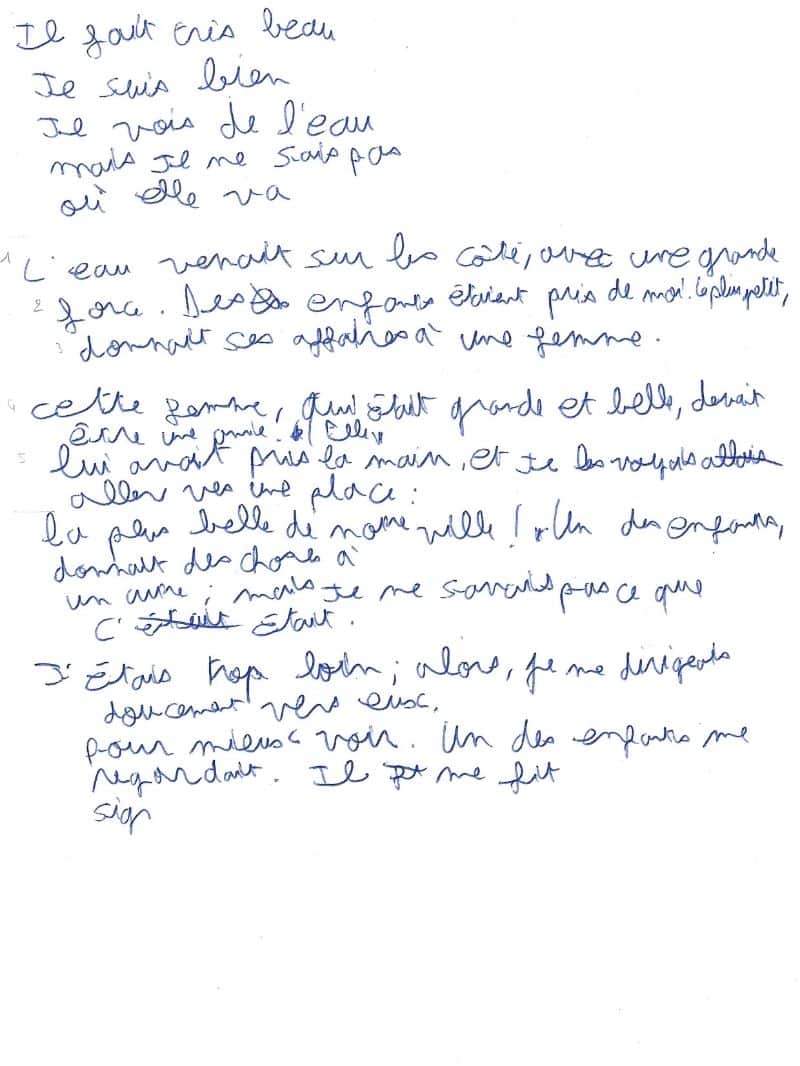 Il fait très beau
Je suis bien
Je vois de l'eau
mais je ne sais pas
où elle va
1 L'eau venait sur les côté, avec une grande
2 force. Des enfants étaient près de moi. le plus petit,
3 donnait ses affaires à une femme.
4 cette femme, qui était grande et belle, devait
être une amie. Elle,
5 lui avait pris la main, et je les voyais allais
aller vers une place :
la plus belle de notre ville ! Un des enfants,
donnait des choses à
un autre ; mais je ne savais pas ce que
c'était était.
J'étais trop loin ; alors, je me dirigeais
doucement vers eux,
pour mieux voir. Un des enfants me
regardait. Il me fit
sign